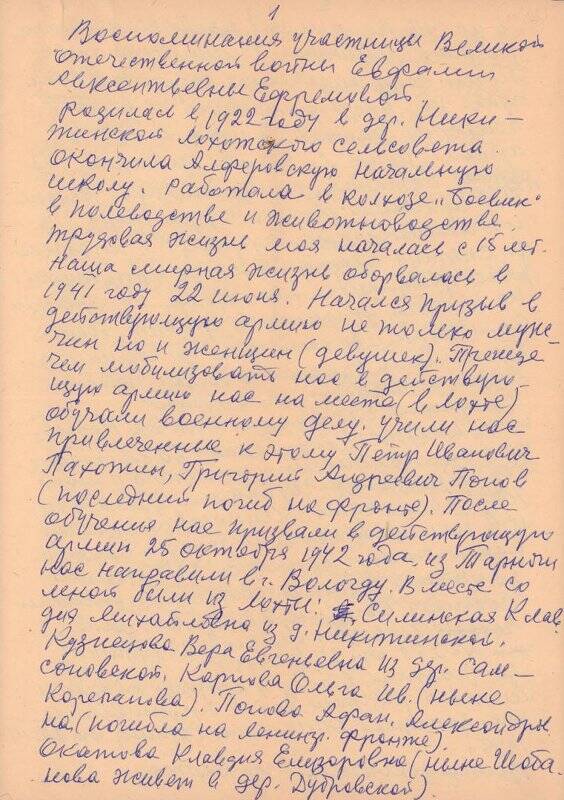 1
Воспоминания участницы Великой
Отечественной войны Евфалии
Авксентьевны Ефремовой
Родилась в 1922 году в дер. Ники-
жинской Лохотского сельсовета.
Окончила Алферовскую начальную
школу. Работала в колхозе „Боевик"
в полеводстве и животноводстве.
Трудовая жизнь моя началась с 15 лет.
Наша мирная жизнь оборвалась в
1941 году 22 июня. Начался призыв в
действующую армию не только муж-
чин но и женщин (девушек). Прежде
чем мобилизовать нас в действую-
щую армию нас на месте (в Лохте)
обучали военному делу. Учили нас
привлеченные к этому Пётр Иванович
Пахожин, Григорий Андреевич Попов
(последний погиб на фронте). После
обучения нас призвали в действующую
армию 25 октября 1942 года. из Тарноги
нас направили в г. Вологду. Вместе со
мной были из Лохты: Силинская Клав
дия Михайловна из д. Никижинской,
Кузнецова Вера Евгеньевна из дер. Сам-
соновской. Карпова Ольга Ив. (ныне
Корепанова). Попова Афан. Александры
на (погибла на Ленингр. фронте).
Окатова Клавдия Елизаровна (ныне Шоба
нова живет в дер. Дубровской)